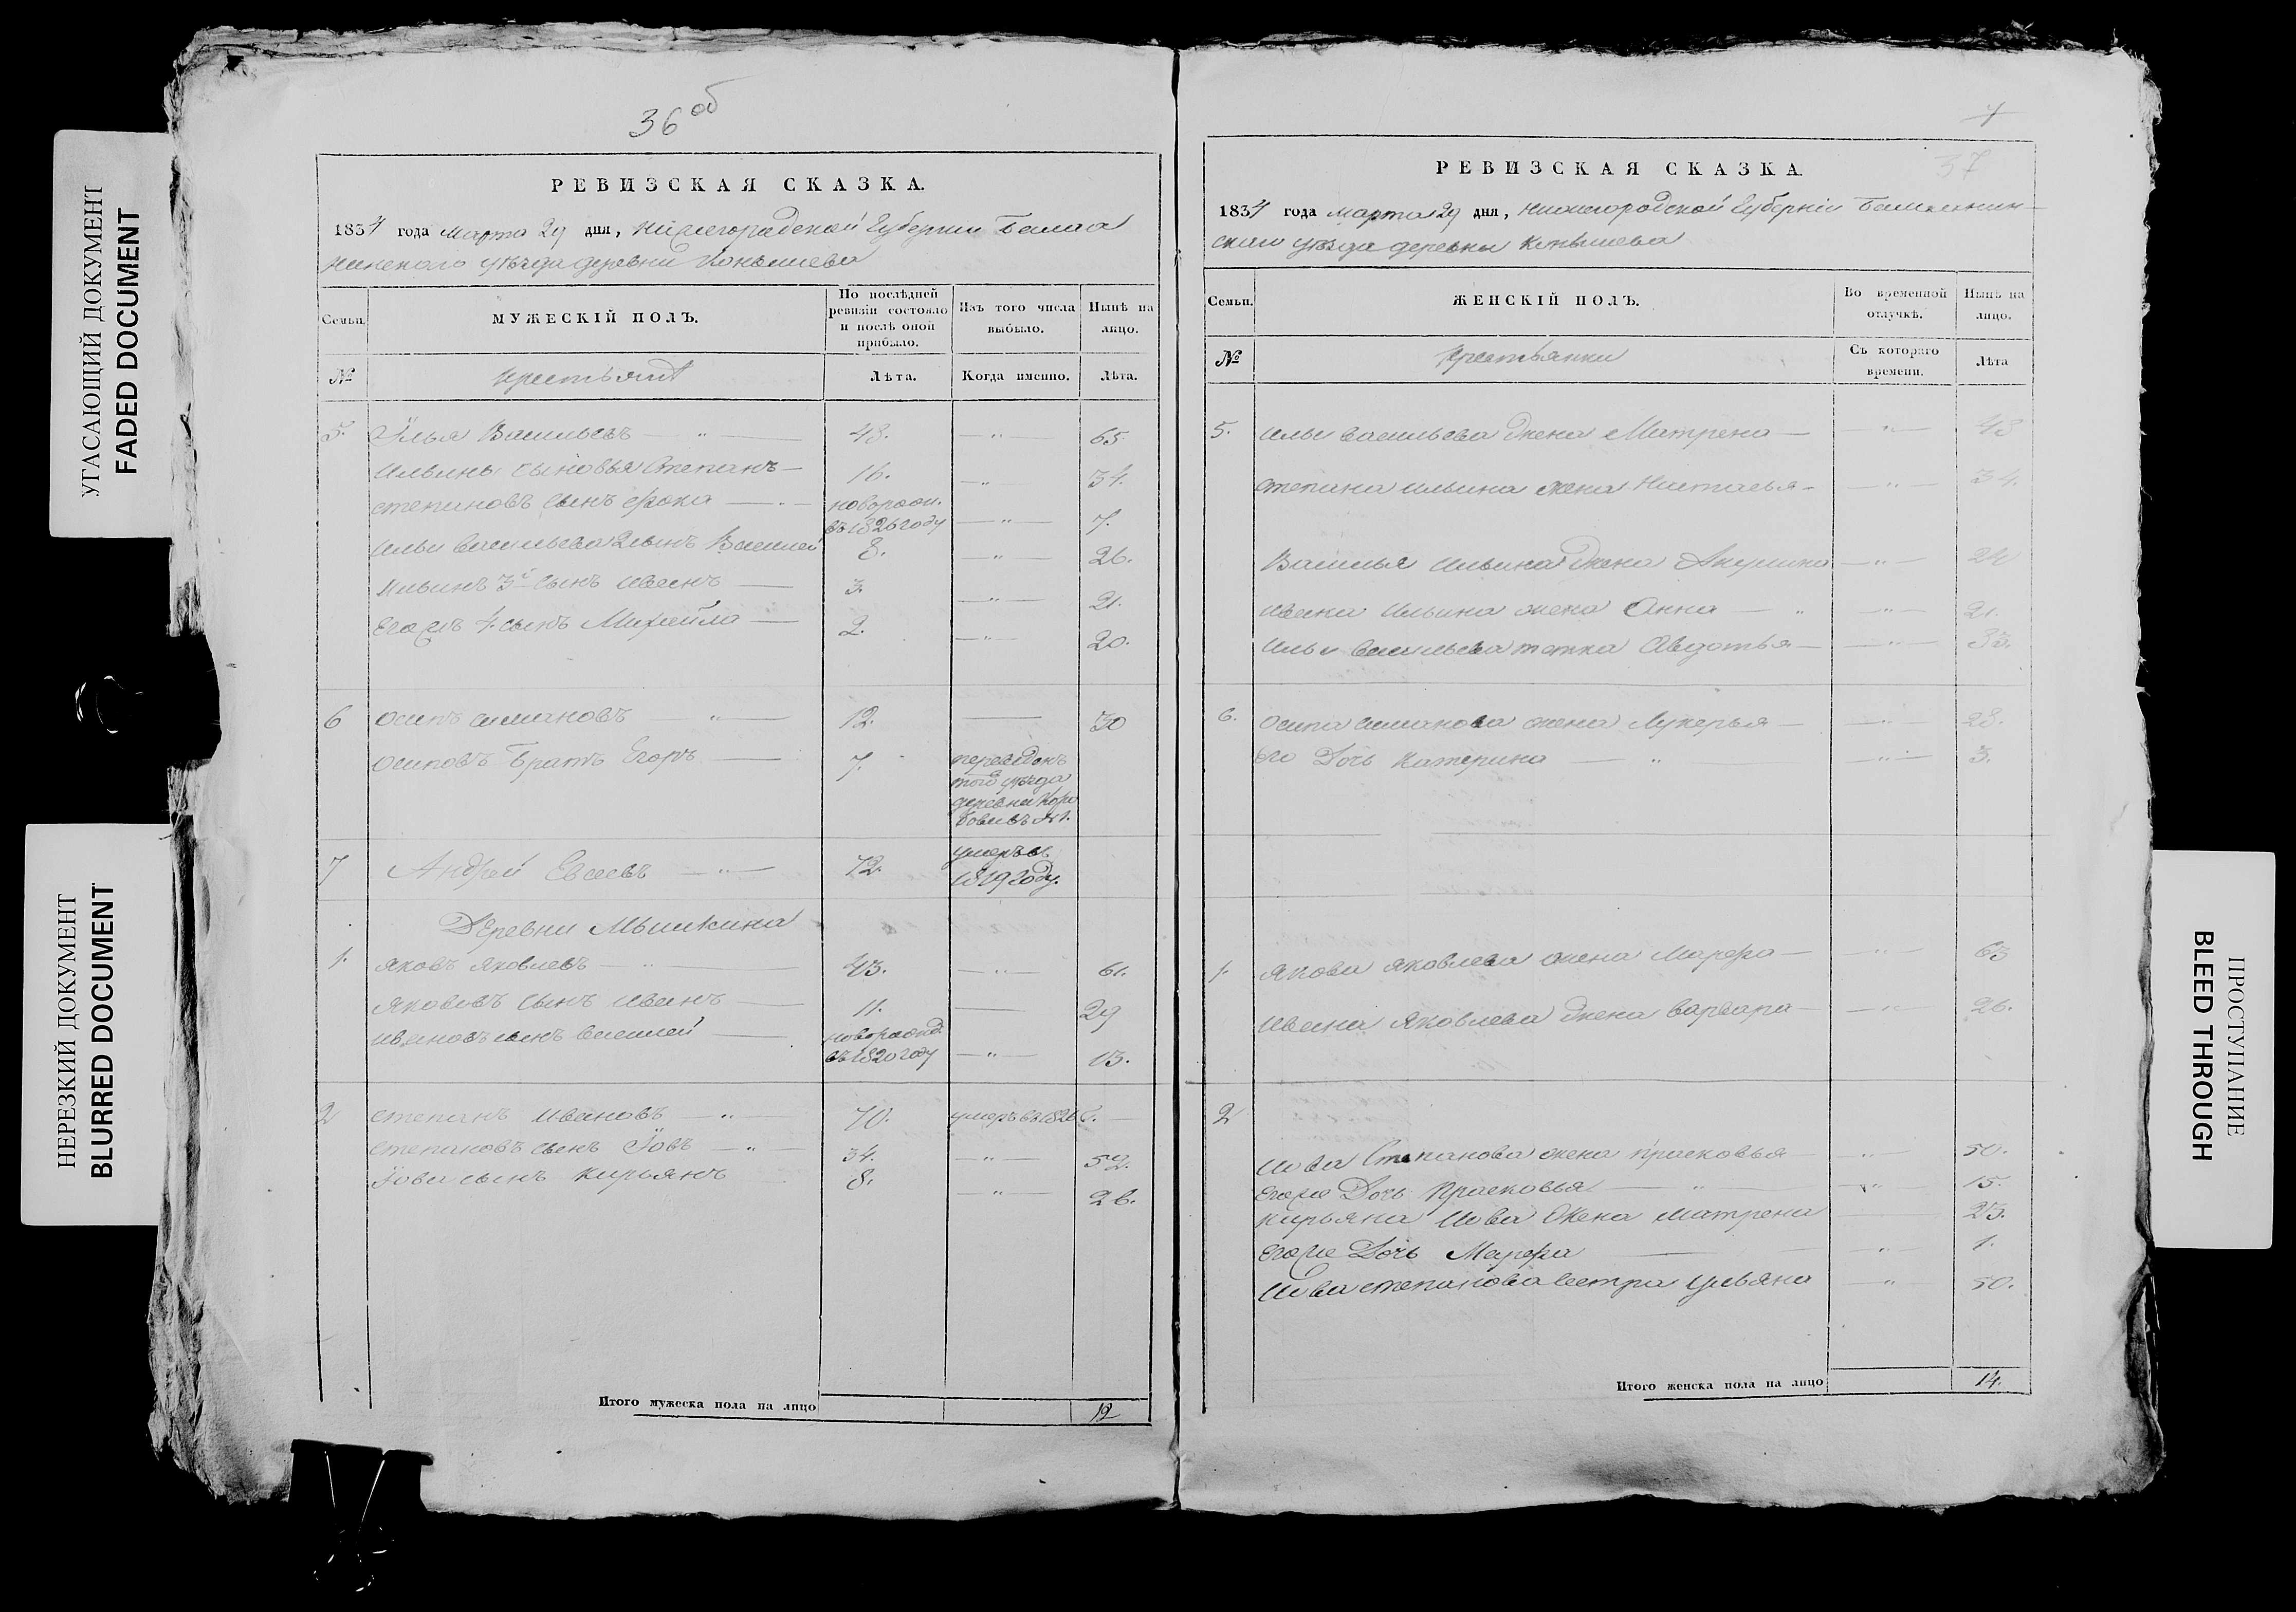 УГАСАЮЩИЙ ДОКУМЕНТ
FADED DOCUMENT
НЕРЕЗКИЙ ДОКУМЕНТ
BLURRED DOCUMENT
36 об
РЕВИЗСКАЯ СКАЗКА.
1834 года марта 29 дня, Нижегородской Губернии Балах
нинского уѣзда деревни Конышева
Семьи.
МУЖЕСКІЙ ПОЛЪ.
По послѣдней ревизіи состояло и послѣ оной прибыло.
Изъ того числа выбыло.
Нынѣ на лицо.
№
Лѣта.
Когда именно.
Лѣта.
5. Илья Васильевъ — " — 48. — " — 65.
Ильины сыновья Степанъ — 16. — " — 34.
Степановъ сынъ Фока — новорожд. въ 1826 году — " — 7.
Ильи Васильева 2 сынъ Василей 8. — " — 26.
Ильинъ 3й сынъ Иванъ — 3. — " — 21.
Егожъ 4. сынъ Михайло — 2. — " — 20.
6 Осипъ Симановъ " — 12. — 30
Осиповъ Братъ Егоръ — 7.
переведенъ
того уѣзда
деревни Коро
7 Андрей Евсеевъ — " — 72. умеръ въ
1819 году.
Деревни Мышкина
1. Яковъ Яковлевъ — " 43. — " — 61.
Яковлевъ сынъ Иванъ — 11. — 29
Ивановъ сынъ Василей — новорожд. въ 1820 году — " — 13.
2 Степанъ Ивановъ — " 70. умеръ въ 1826 г. —
Степановъ сынъ Іовъ — " — 34. — " — 52.
Іова сынъ Кирьянъ 8. — " — 26.
Итого мужеска пола на лицо 12
37
РЕВИЗСКАЯ СКАЗКА.
1834 года марта 29 дня, Нижегородской Губерніи Балахнин-
скаго уѣзда деревни Конышева
Семьи.
ЖЕНСКІЙ ПОЛЪ.
Во временной отлучкѣ.
Нынѣ на лицо.
№
Крестьянки
Съ котораго времени.
Лѣта
5. Ильи Васильева жена Матрена — — " — 48
Степана Ильина жена Настасья — — " — 34.
Василья Ильина жена Акулина — " —
Ивана Ильина жена Анна — " — " — 21.
Ильи Васильева тетка Авдотья — — " —
6. Осипа Симанова жена Лукерья — — " — 28.
Его Дочь Катерина — " — " — 3.
1. Якова Яковлева жена Марфа — — " — 63
Ивана Яковлева жена Варвара — — " — 26.
2
Иова Степанова жена Прасковья — — " — 50.
Егоже Дочь Прасковья — " — " — 15.
Кирьяна Иова жена Матрена — 23.
Егоже Дочь Марфа — " — 1.
Иова Степанова сестра Ульяна — " — 50.
Итого женска пола на лицо 14.
ПРОСТУПАНИЕ
BLEED THROUGH